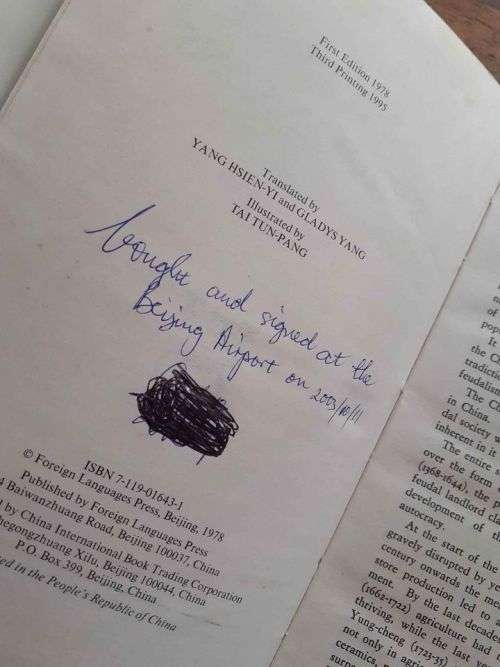 First Edition 1978
Third Printing 1995
Translated by
YANG HSIEN-YI and GLADYS YANG
Illustrated by
TAI TUN-PANG
bought and signed at the
Beijing Airport on
ISBN 7-119-01643-1
© Foreign Languages Press, Beijing, 1978
Published by Foreign Languages Press
Baiwanzhuang Road, Beijing 100037, China
by China International Book Trading Corporation
Chegongzhuang Xilu, Beijing 100044, China
P.O. Box 399, Beijing, China
in the People's Republic of China
of
It
the C
feudalism
The C
in China.
dal society
inherent in it
The entire
over the form
(1368-1644), the p
feudal landlord cl
development of th
autocracy.
At the start of the
gravely disrupted by
century onwards the
store production led to a
ment. By the last decade
(1662-1722) agriculture had
thriving, while the last
Yung-cheng (1723-35)
not only in
ceramics,